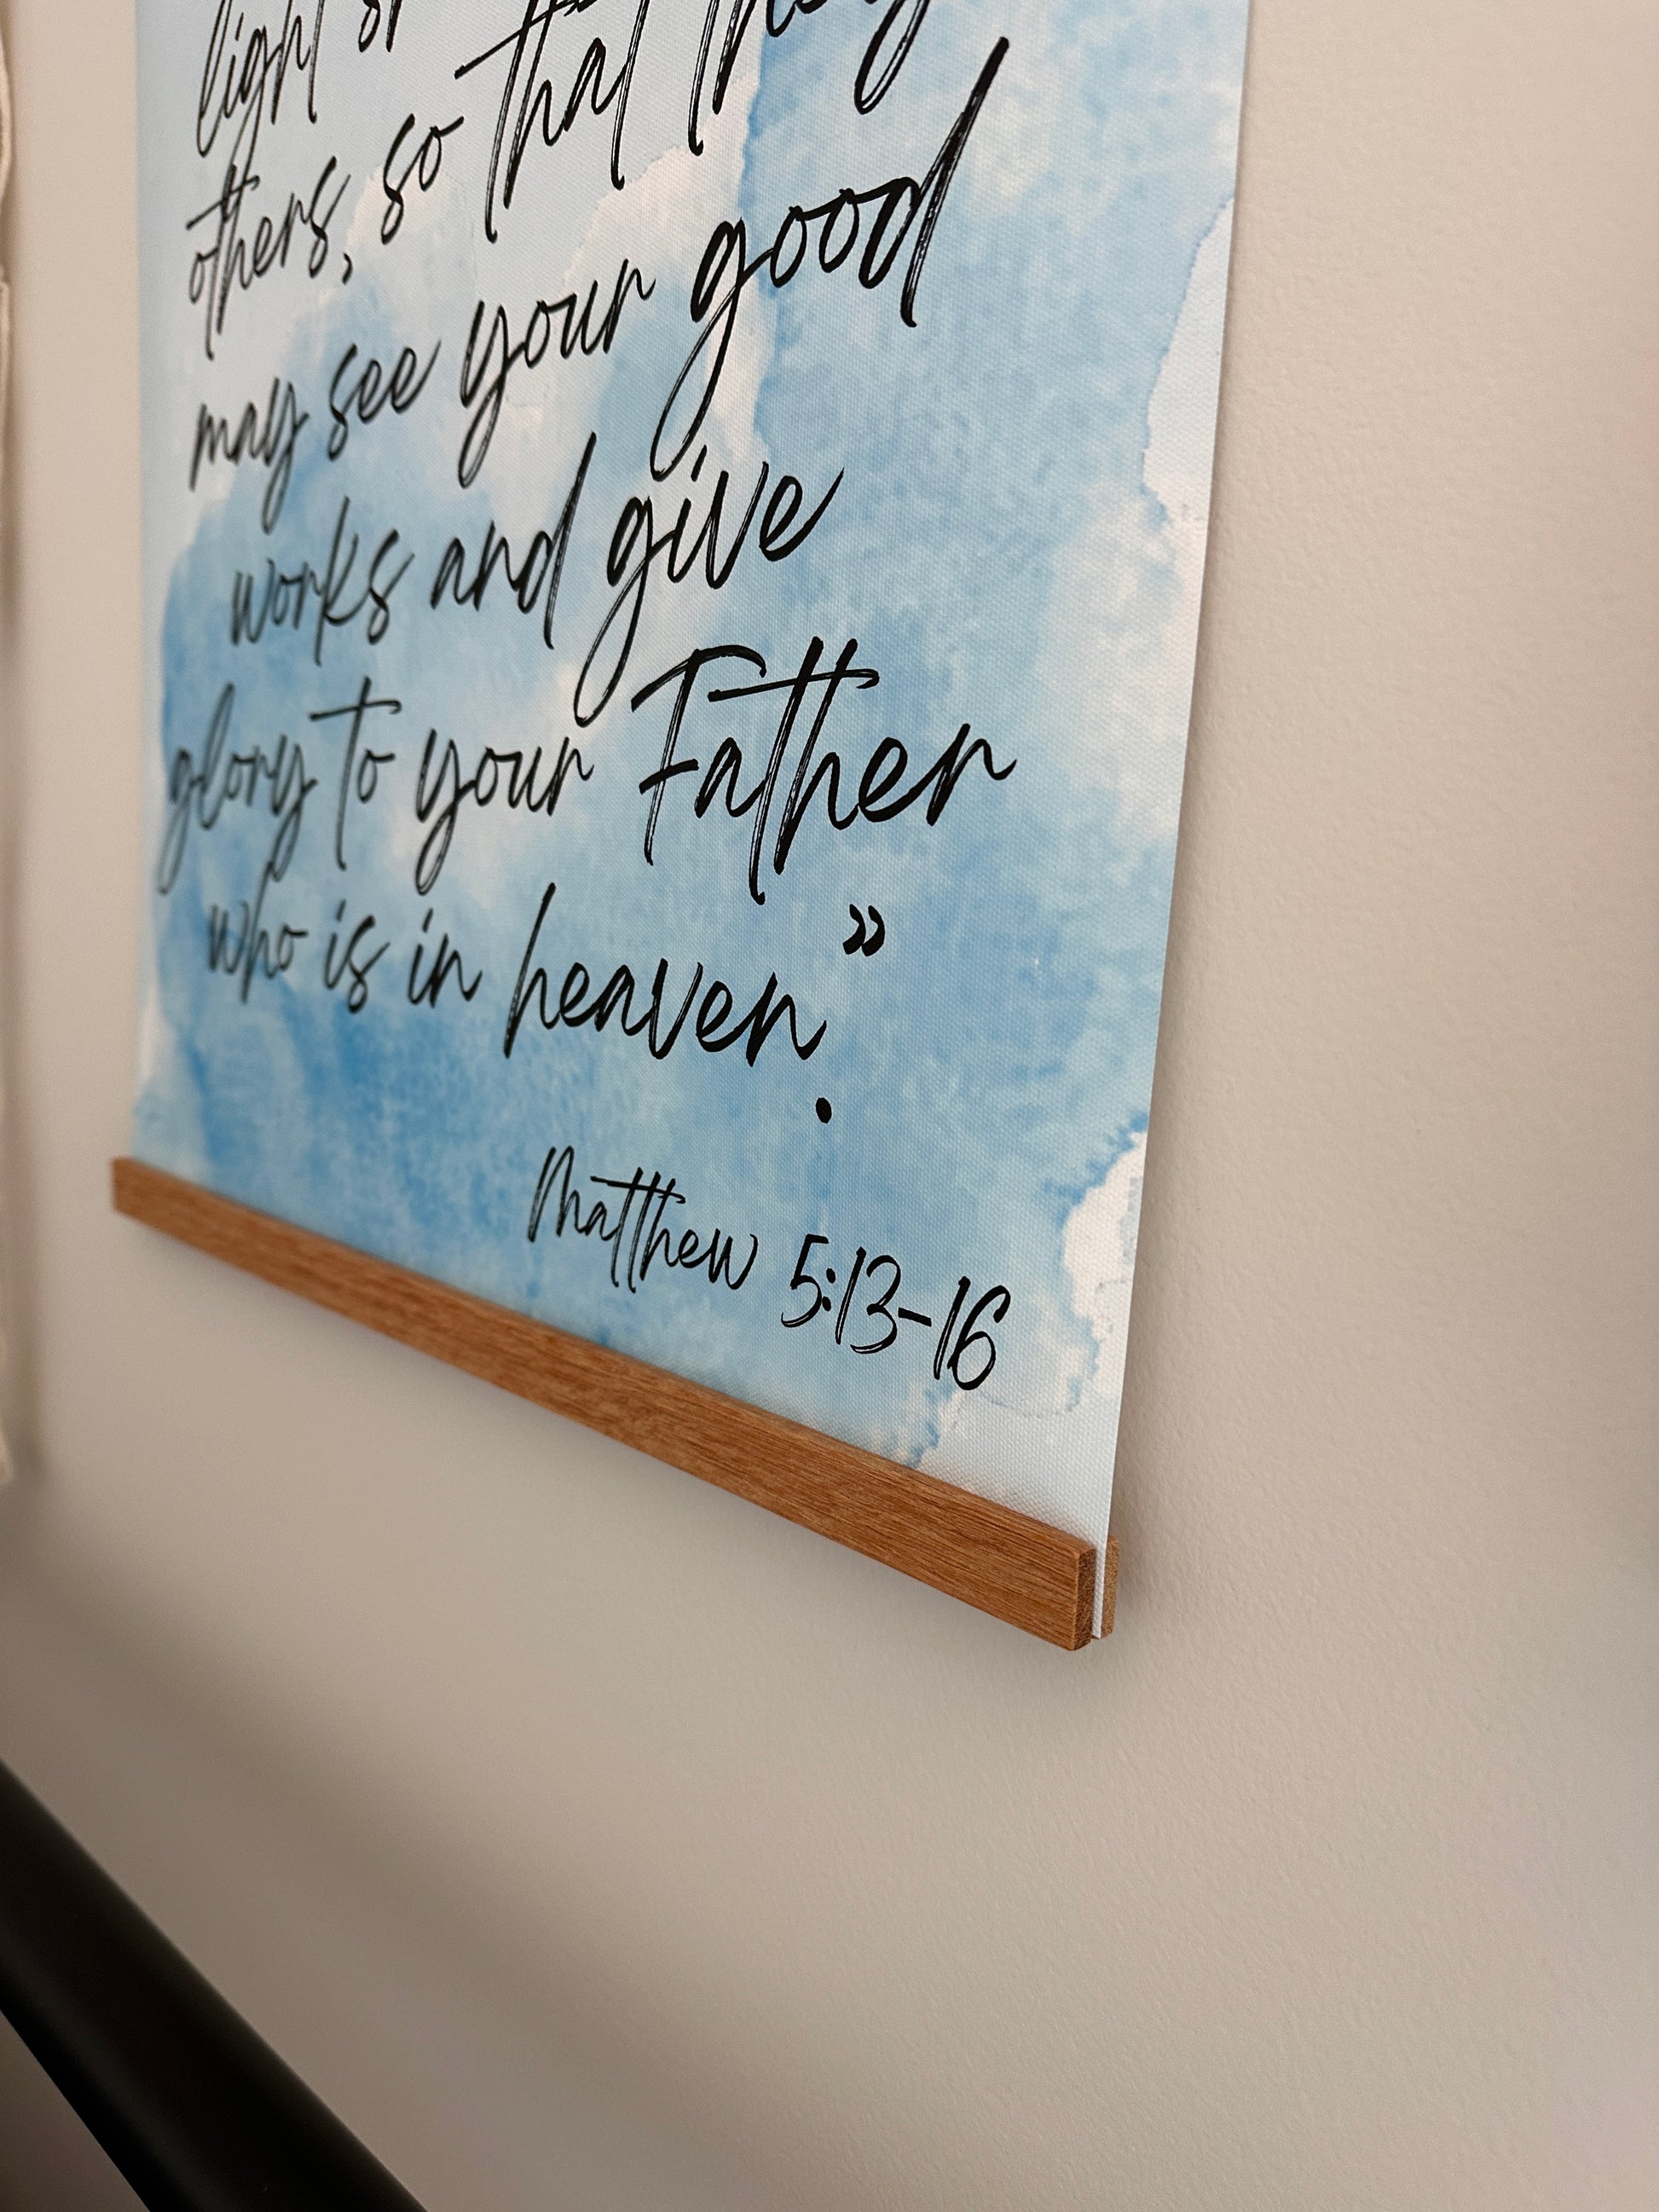 light
others, so that they
may see your good
works and give
glory to your Father
who is in heaven.”
Matthew 5:13-16